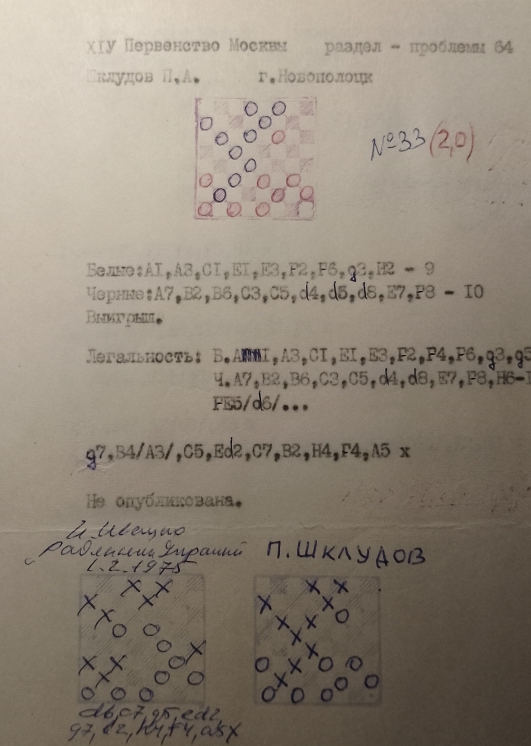 XIУ Первенство Москвы раздел - проблемы 64
Шклудов П.А. г.Новополоцк
№33 (2,0)
Белые:AI,A3,CI,EI,E3,F2,F6,g3,H2 - 9
Черные:A7,B2,B6,C3,C5,d4,d5,d8,E7,F8 - IO
Выигрыш.
Легальность: Б. I,A3,CI,EI,E3,F2,F4,F6,g3,g5
Ч.A7,B2,B6,C3,C5,d4,d8,E7,F8,H6-
FE5/d6/...
g7,B4/A3/,C5,Ed2,C7,B2,H4,F4,A5 x
Не опубликована.
И.Ивацко
"Радянська
1.2.1975
П.ШКЛУДОВ
d6,c7,g5,ed2,
g7,b2,h4,f4,a5x